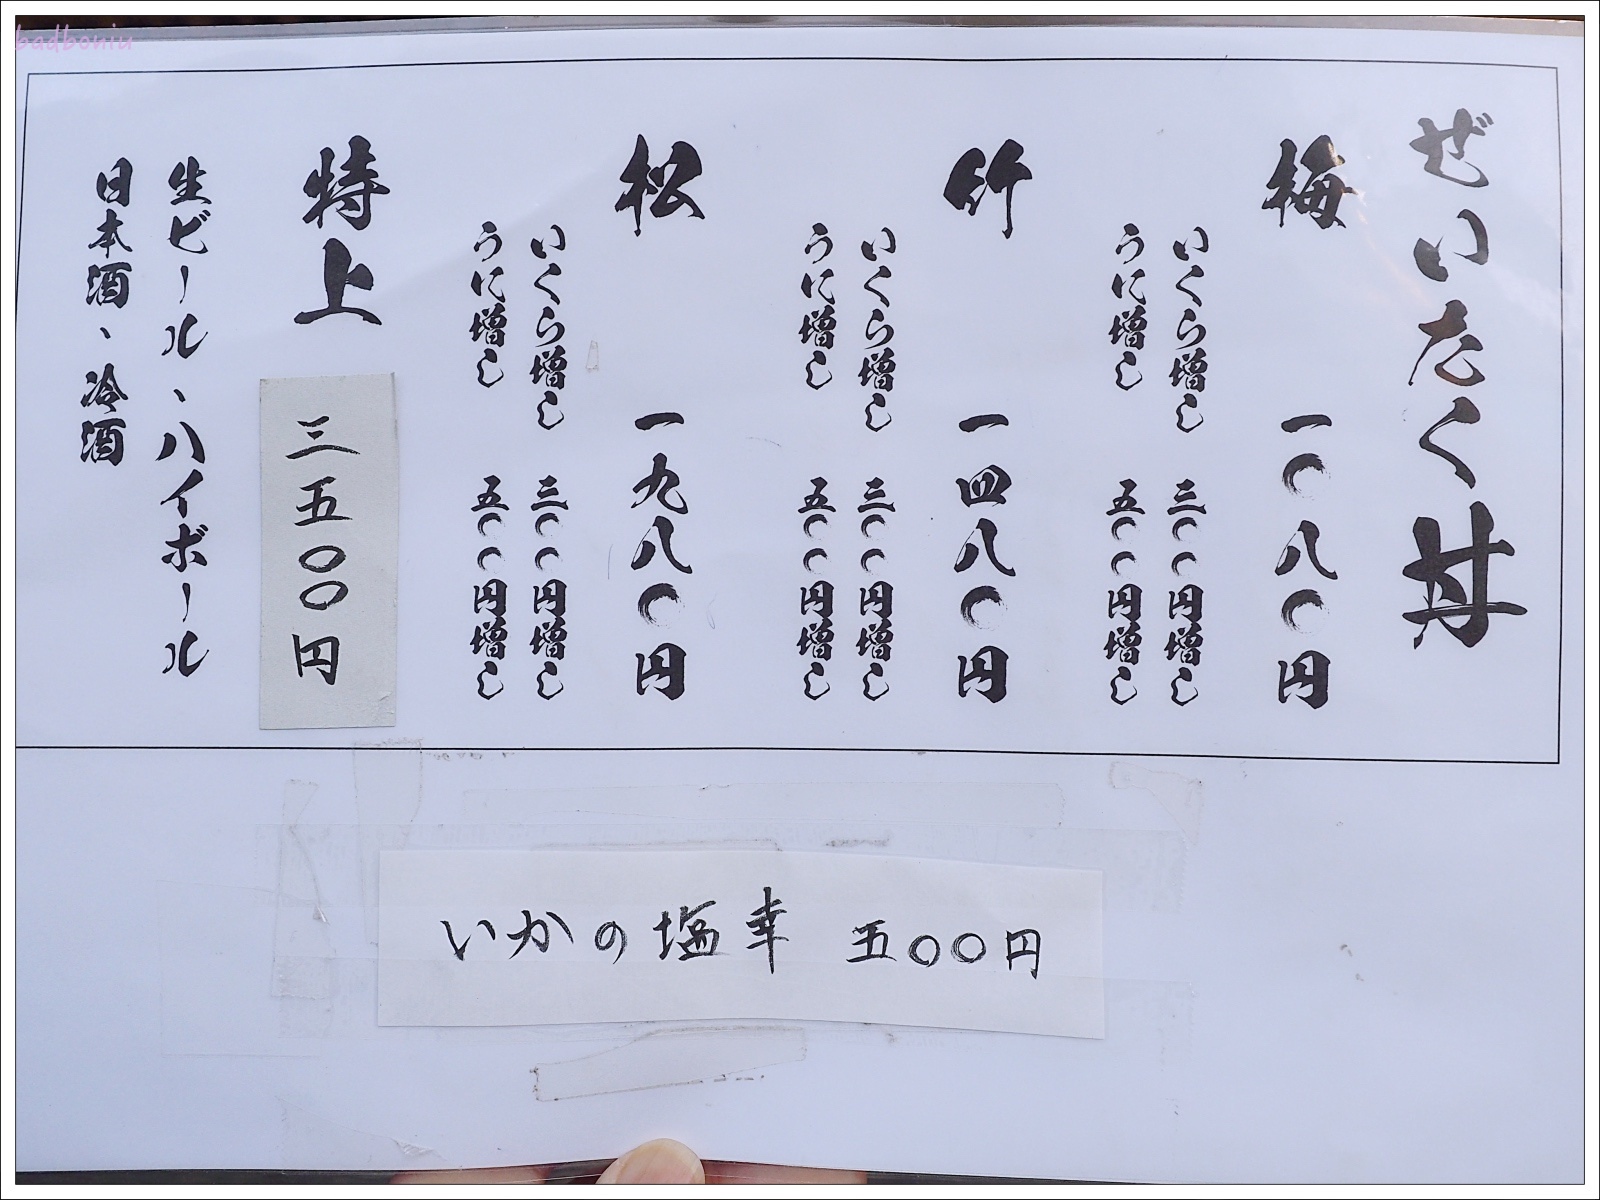 ぜいたく丼
梅 一〇八〇円
いくら増し 三〇〇円増し
うに増し 五〇〇円増し
竹 一四八〇円
いくら増し 三〇〇円増し
うに増し 五〇〇円増し
松 一九八〇円
いくら増し 三〇〇円増し
うに増し 五〇〇円増し
特上 三五〇〇円
生ビール、ハイボール
日本酒、冷酒
いかの塩幸 五〇〇円
badboniu